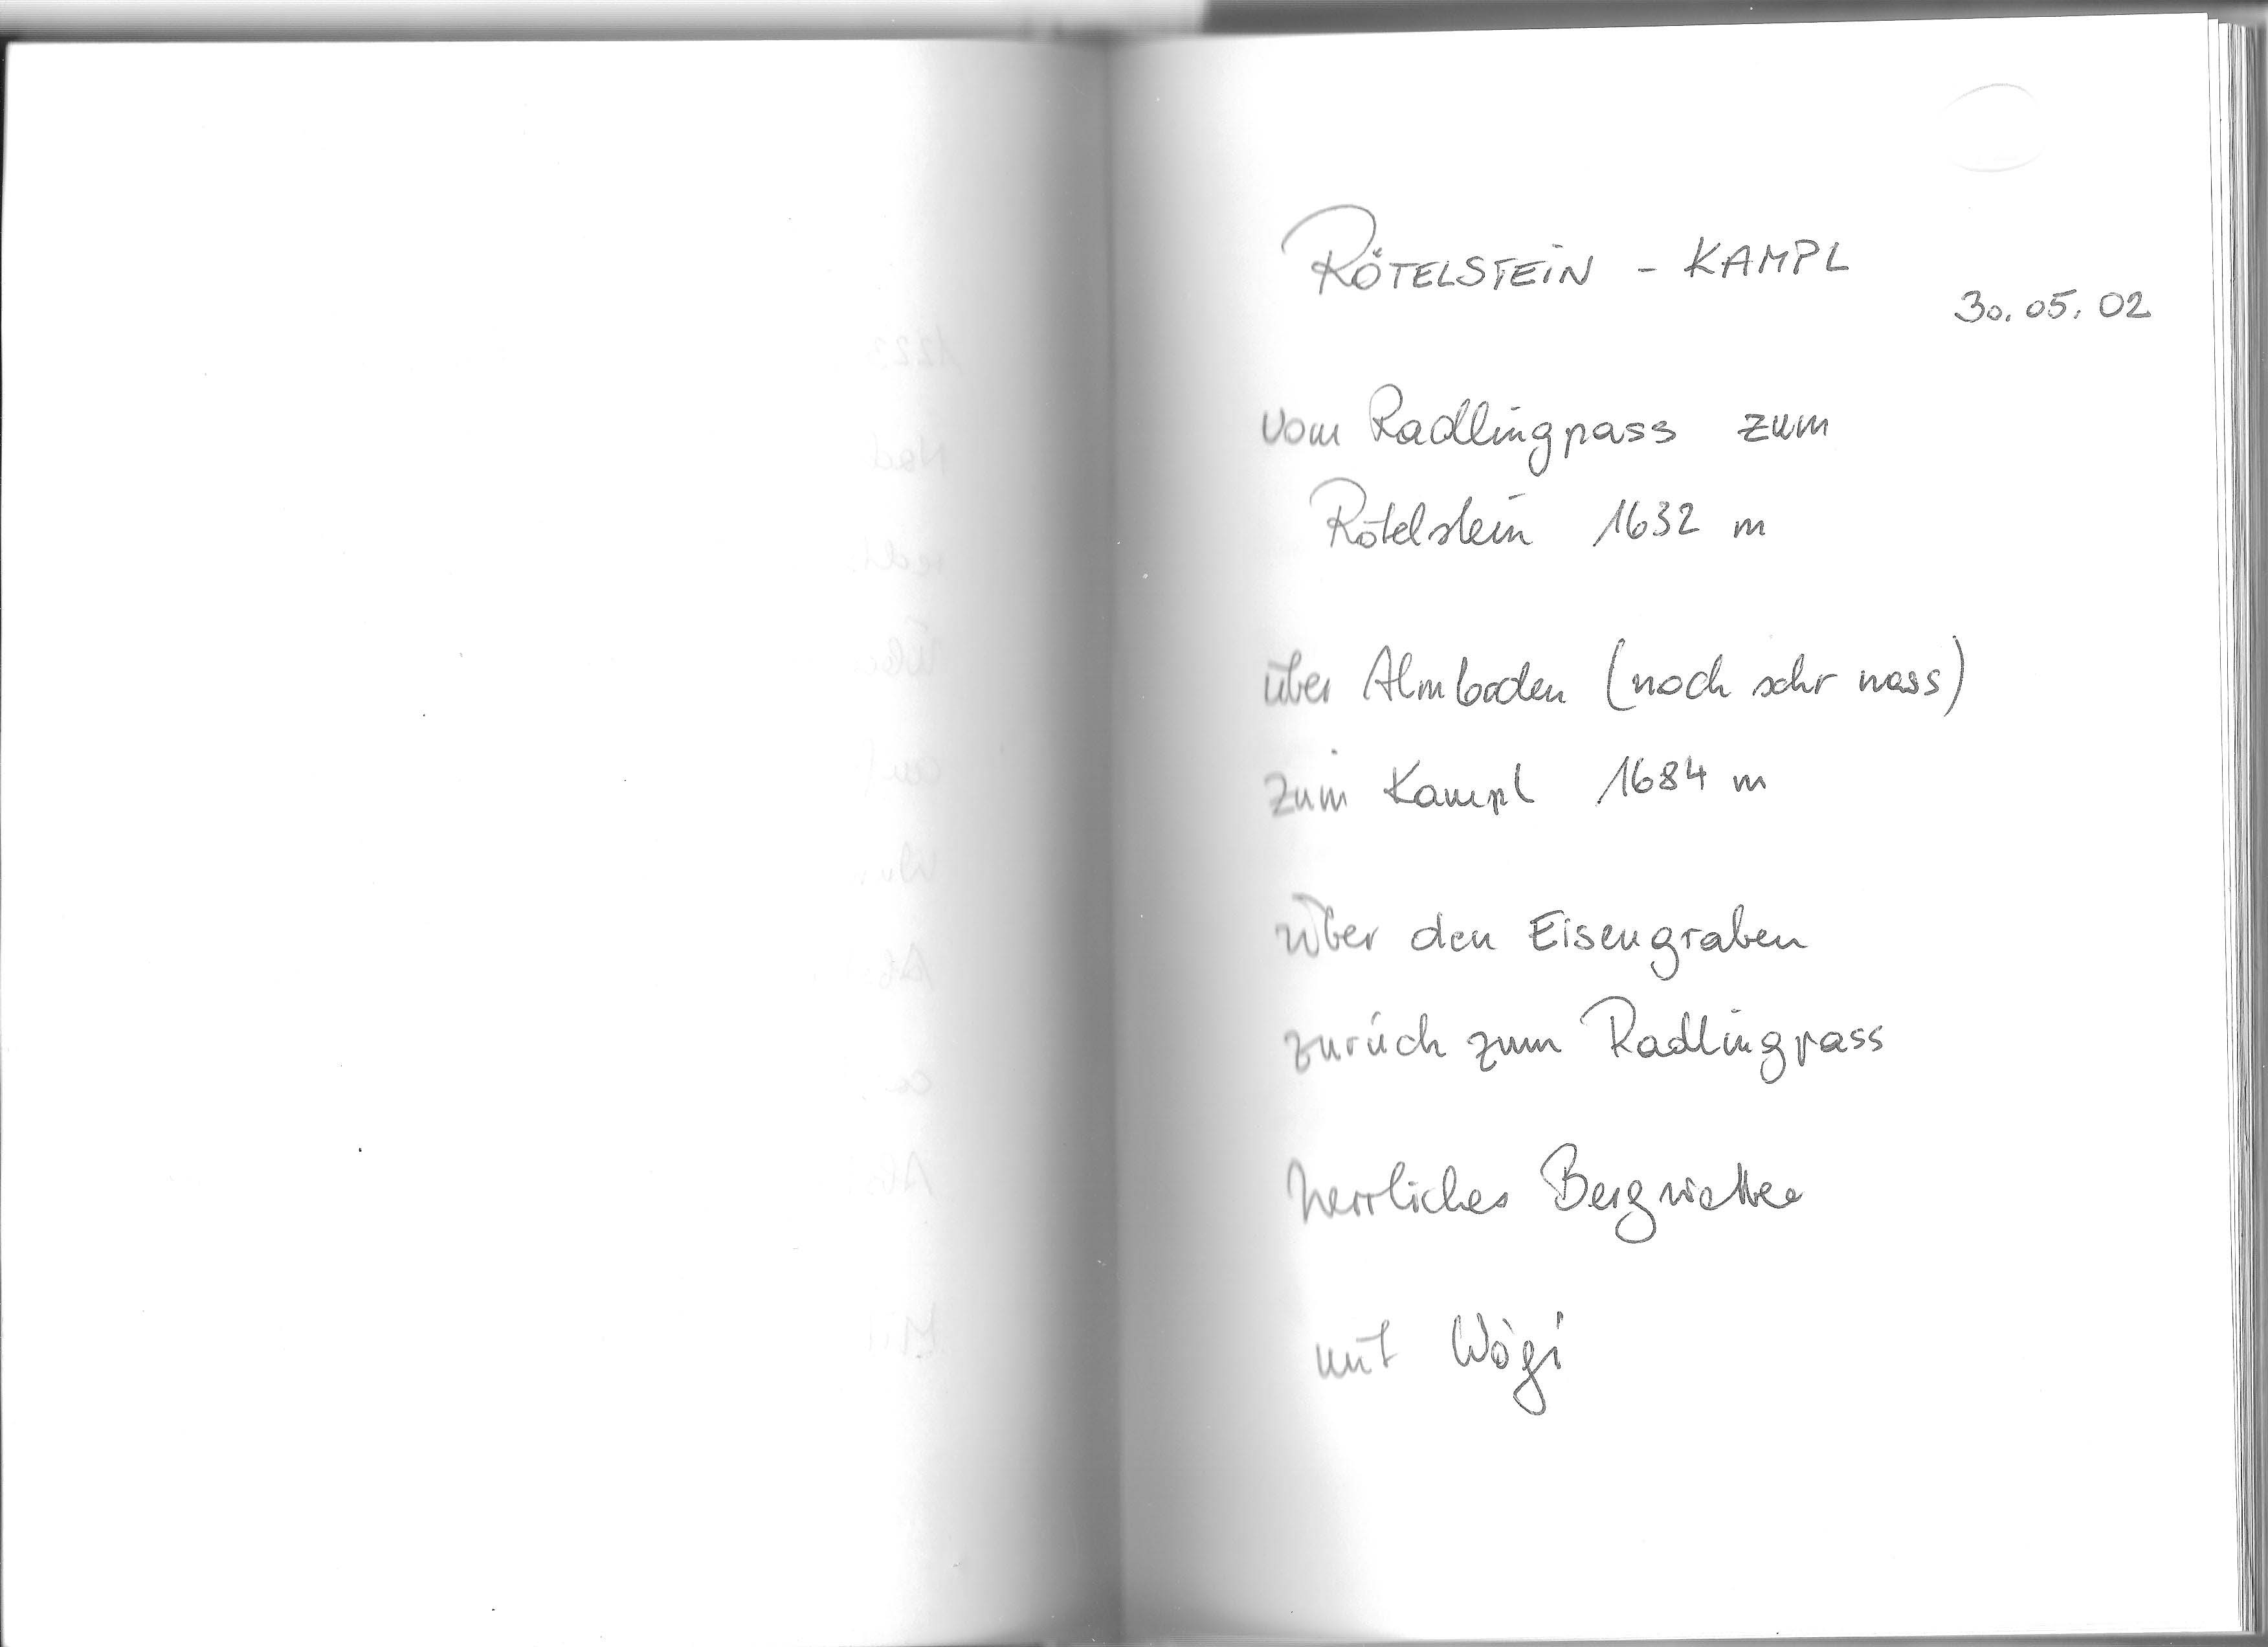 RÖTELSTEIN - KAMPL
30.05.02
vom Radlingpass zum
Rötelstein 1632 m
über Almboden (noch sehr nass)
zum Kampl 1684 m
über den Eisengraben
zurück zum Radlingpass
herrliches Bergwetter
mit Wögi